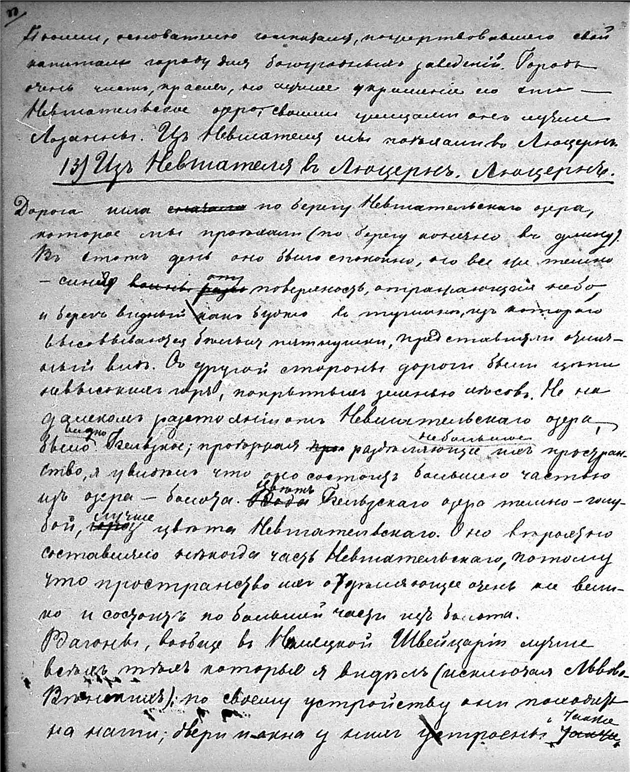 основателю гимназіи, пожертвовавшего свой
капиталъ городу для богоугодныхъ заведеній. Городъ
очень чистъ, красивъ, но лучшее украшеніе его это —
Невшательское озеро, своими улицами онъ лучше
Лозанны. Изъ Невшателя мы поѣхали въ Люцернъ
13) Изъ Невшателя въ Люцернъ. Люцернъ.
Дорога шла сначала по берегу Невшательскаго озера,
которое мы проѣхали (по берегу конечно въ длину).
Въ этотъ день оно было спокойно, его все же темно
— синяя поверхность, отражающая небо
и берегъ видный какъ будто въ туманѣ, изъ котораго
высовывающа бѣлыя пятнушки, представляли
видъ. Съ другой стороны дороги были цѣпи
невысокихъ горъ, покрытыхъ зеленью лѣсовъ. Не на
далекомъ разстояніи отъ Невшательскаго озера,
было видно Бельзкое; проѣзжая небольшое раздѣляющее ихъ простран-
ство, я увидѣлъ что оно состоитъ большею частью
изъ озера — болота. Цвѣтъ Бельзскаго озера темно-голу-
бой, лучше цвѣта Невшательскаго. Оно вѣроятно
составляло нѣкогда часть Невшательскаго, потому
что пространство ихъ отдѣляющее очень не вели-
ко и состоитъ по большей части изъ болота.
Вагоны, вообще въ Нѣмецкой Швейцаріи лучше
всѣхъ тѣхъ которые я видѣлъ (исключая Львово
Вѣнскихъ); по своему устройству они походятъ
на наши; двери и окна у нихъ устроены также